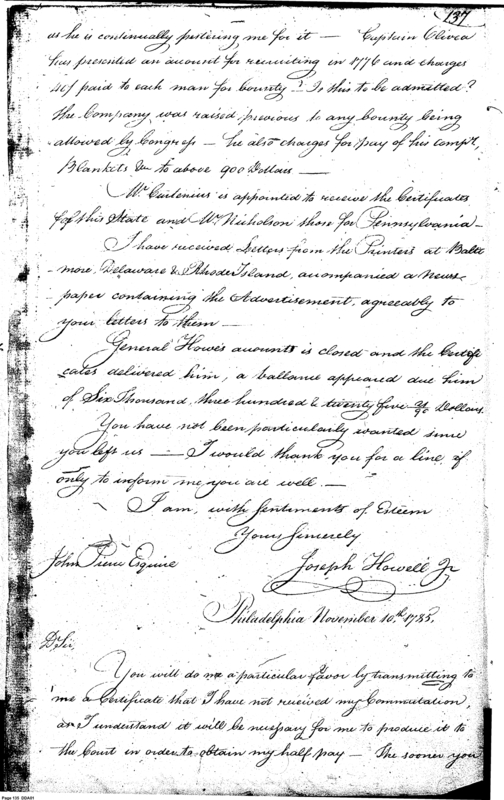 137
as he is continually pestering me for it — Captain Olivea
has presented an account for recruiting in 1776 and charges
40/ paid to each man for bounty? Is this to be admitted?
the Company was raised previous to any bounty being
allowed by Congress — he also charges for pay of his Compy,
Blankets &c to above 900 Dollars —
Mr. Curtenius is appointed to receive the Certificates
for this State and Mr. Nicholson those for Pennsylvania —
I have received Letters from the Printers at Balti
-more, Delaware & Rhode Island, accompanied a News
paper containing the Advertisement, agreeably to
your letters to them —
General Howe's accounts is closed and the Certifi
cates delivered him, a ballance appeared due him
of Six Thousand, three hundred & twenty five Dollars
You have not been particularly wanted since
you left us — I would thank you for a line if
only to inform me you are well —
I am, with Sentiments of Esteem
Yours Sincerely
John Pierce Esquire
Joseph Howell Jr
Philadelphia November 10th 1785.
Dr Sir,
You will do me a particular favor by transmitting to
me a Certificate that I have not received my Commutation,
as I understand it will be necessary for me to produce it to
the Court in order to obtain my half pay — The sooner you
Page 133 DDA01